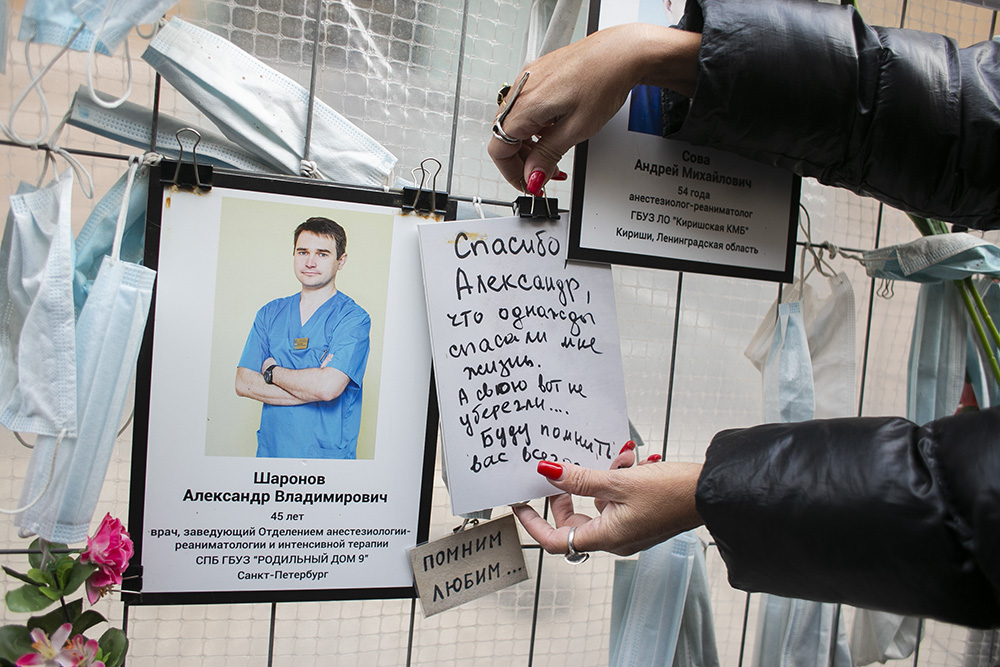 Шаронов
Александр Владимирович
45 лет
врач, заведующий Отделением анестезиологии-
реаниматологии и интенсивной терапии
СПБ ГБУЗ "РОДИЛЬНЫЙ ДОМ 9"
Санкт-Петербург
Спасибо,
Александр,
что однажды
спасали мне
жизнь.
А свою вот не
уберегли....
Буду помнить
вас
ПОМНИМ
ЛЮБИМ...
Сова
Андрей Михайлович
54 года
анестезиолог-реаниматолог
ГБУЗ ЛО "Киришская КМБ"
Кириши, Ленинградская область